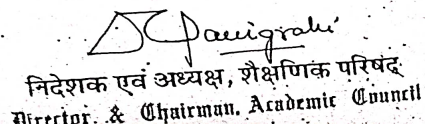 निदेशक एवं अध्यक्ष, शैक्षणिक परिषद्
Director, & Chairman, Academic Council